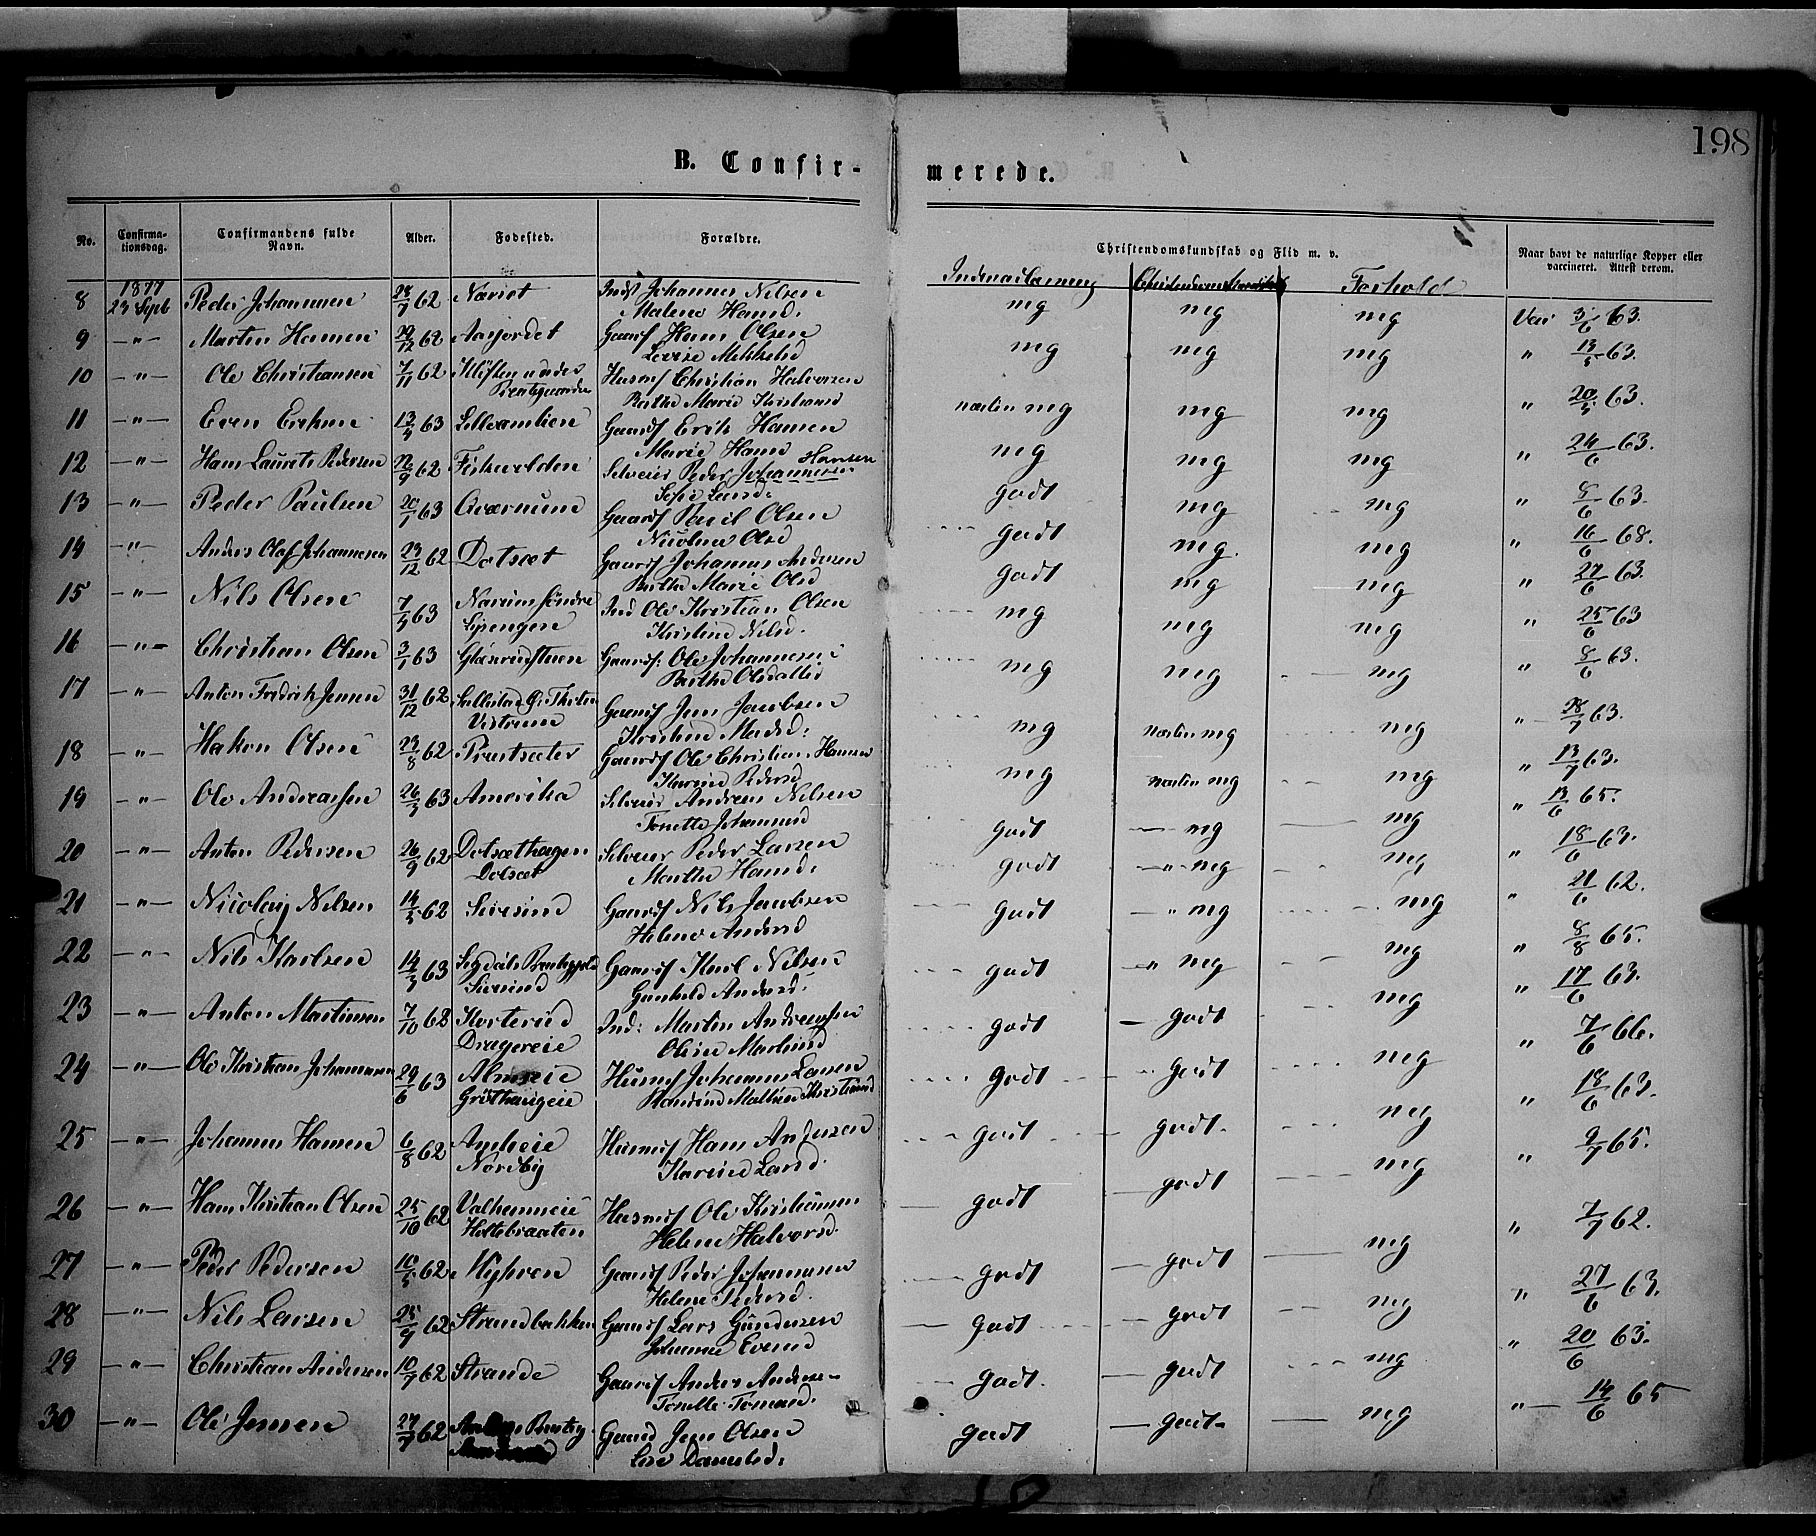 198
B. Confir-
merede.
No.
Confirma-
tionsdag.
Confirmandens fulde
Navn.
Alder.
Fødested.
Forældre.
Christendomskundskab og Flid m. v.
Naar havt de naturlige Kopper eller
vaccineret. Attest derom.
Indenadlæsning Christendomskundskab Forhold
1877
8 23 Sept Peder Johannesen 28/7 62 Næriet Johannes Nilsen mg mg mg Vac 3/6 63.
Malene Hansd.
9 -"- Martin Hansen 29/12 62 Aasjordet Gaardf Hans Olsen mg mg mg " 13/5 63.
Lovise Mikkelsd
10 -"- Ole Christiansen 7/11 62 Kliften under Husmf Christian Halvorsen næsten mg mg mg " 20/5 63.
Prestegaarden Berthe Marie Kristiansd
11 -"- Even Eriksen 13/4 63 Lillevamlien Gaardf Erik Hansen mg mg mg " 24/6 63.
Marie Hansd
12 -"- Hans Laurits Pedersen 22/9 62 Selveier Peder Johannesen Hansen godt mg mg " 8/6 63.
Sofie Larsd.
13 -"- Peder Paulsen 20/1 63 Qværnum Gaardf Povel Olsen godt mg mg " 16/6 68.
Nicoline Olsd
14 -"- Anders Olaf Johannesen 23/12 62 Dølsæt Gaardf Johannes Andersen godt mg mg " 27/6 63.
Berthe Marie Olsd
15 -"- Nils Olsen 7/4 63 Narum søndre Ind Ole Kristian Olsen mg mg mg " 25/6 63
Kristine Nilsd.
16 -"- Christian Olsen 3/1 63 Gaardf: Ole Johannesen mg mg mg " 8/6 63.
Berthe Olsdatter
17 -"- Anton Fredrik Jensen 31/12 62 Gaardf Jens Jacobsen mg næsten mg mg " 28/7 63.
Kristine Madsd:
18 -"- Hakon Olsen 23/8 62 Prestsæter Gaardf Ole Christian Hansen mg næsten mg mg " 13/7 63.
Karine Pedersd
19 -"- Ole Andreassen 26/3 63 Amerika Selveier Andreas Nilsen godt mg mg " 13/6 65.
Tonette Johannesd
20 -"- Anton Pedersen 26/9 62 Dølsæthagen Selveier Peder Larsen godt -"- mg mg " 18/6 63.
Dølsæt Marthe Hansd.
21 -"- Nicolay Nilsen 14/5 62 Sivesind Gaardf Nils Jacobsen godt -"- mg mg " 21/6 62.
Helene Andersd
22 -"- Nils Karlsen 14/3 63 Gaardf Karl Nilsen godt -"- mg mg " 8/8 65.
Sivesind Gunhild Andersd.
23 -"- Anton Martinsen 7/10 62 Korterud Ind: Martin Andreassen godt godt mg " 17/6 63.
Dragereie Oline Martinsd
24 -"- Ole Kristian Johannesen 29/6 63 Husmf Johannes Larsen godt godt mg " 7/6 66.
Grøthaugeie Mathea Kristiansd
25 -"- Johannes Hansen 6/8 62 Husmf Hans Andersen godt godt mg " 18/6 63.
Nordby Karine Larsd.
" 9/7 65.
26 -"- Hans Kristian Olsen 25/10 62 Husmf Ole Kristiansen godt godt mg " 7/7 62.
Holtebraaten Helene Halvorsd.
27 -"- Peder Pedersen 10/5 62 Myhren Gaardf Peder Johannesen godt godt mg " 27/6 63.
Helene Pedersd.
28 -"- Nils Larsen 25/9 62 Strandbakken Gaardf Lars Gundersen godt godt mg " 20/6 63.
Johanne Evensd
29 -"- Christian Andersen 10/7 62 Strande Gaardf Anders Andersen godt godt mg " 14/6 65
Tonette Tomasd.
30 -"- Ole Jensen 27/7 62 Gaard Jens Olsen godt godt mg
Lise Danielsd.